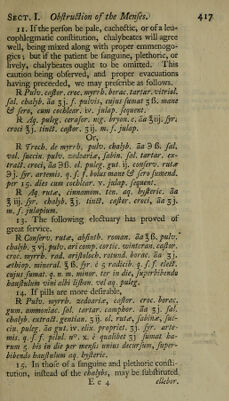 SECT. I. Obſtruction of the Menſes. 417
11. If the perſon be pale, cachectic, or of a leu-
cophlegmatic conſtitution, chalybeates will agree
well, being mixed along with proper emmenogo-
gics; but if the patient be ſanguine, plethoric, or
lively, chalybeates ought to be omitted. This
caution being obſerved, and proper evacuations
having preceeded, we may preſcribe as follows.
℞ Pulv. caſtor. croc. myrrh. borac. tartar. vitriol.
ſal. chalyb. āa ʒj. f. pulvis, cujus ſumat ʒß. mane
& ſero, cum cochlear. iv. julap. ſequent.
℞ Aq. puleg. ceraſor. nig. bryon. c. āa ℥iij. ſyr.
croci ℥j. tinct. caſtor. ʒij. m. f. julap.
Or,
℞ Troch. de myrrh. pulv. chalyb. āa ℈ß. ſal.
vol. ſuccin. pulv. zedoariæ, ſabin. ſal. tartar. ex-
tract. croci, āa ℈ß. ol. puleg. gut. ij. conſerv. rutæ
℈j. ſyr. artemiſ. q. ſ. f. bolus mane & ſero ſumend.
per 15. dies cum cochlear. v. julap. ſequent.
℞ Aq. rutæ, cinnamom. ten. aq. hyſteric. āa
℥iij. ſyr. chalyb. ℥j. tinct. caſtor. croci, āa ʒj.
m. f. julapium.
13. The following electuary has proved of
great ſervice.
℞ Conſerv. rutæ, abſinth. roman. āa ℥ß. pulv.
chalyb. ʒvj. pulv. ari comp. cortic. winteran. caſtor.
croc. myrrh. rad. ariſtoloch. rotund. borac. āa ʒj.
æthiop. mineral. ʒß. ſyr. e 5 radicib. q. ſ. f. elect.
cujus ſumat. q. n. m. minor. ter in die, ſuperbibendo
hauſtulum vini albi liſbon. vel aq. puleg.
14. If pills are more deſirable,
℞ Pulv. myrrh. zedoariæ, caſtor. croc. borac.
gum. ammoniac. ſal. tartar. camphor. āa ʒj. ſal.
chalyb. extract. gentian. ʒij. ol. rutæ, ſabinæ, ſuc-
cin. puleg. āa gut. iv. elix. propriet. ʒj. ſyr. arte-
miſ. q. ſ. f. pilul. nº. x. è qualibet ʒj ſumat ha-
rum 5. bis in die per menſis unius decurſum, ſuper-
bibendo hauſtulum aq. hyſteric.
15. In thoſe of a ſanguine and plethoric conſti-
tution, inſtead of the chalybs, may be ſubſtituted
E e 4 ellebor.